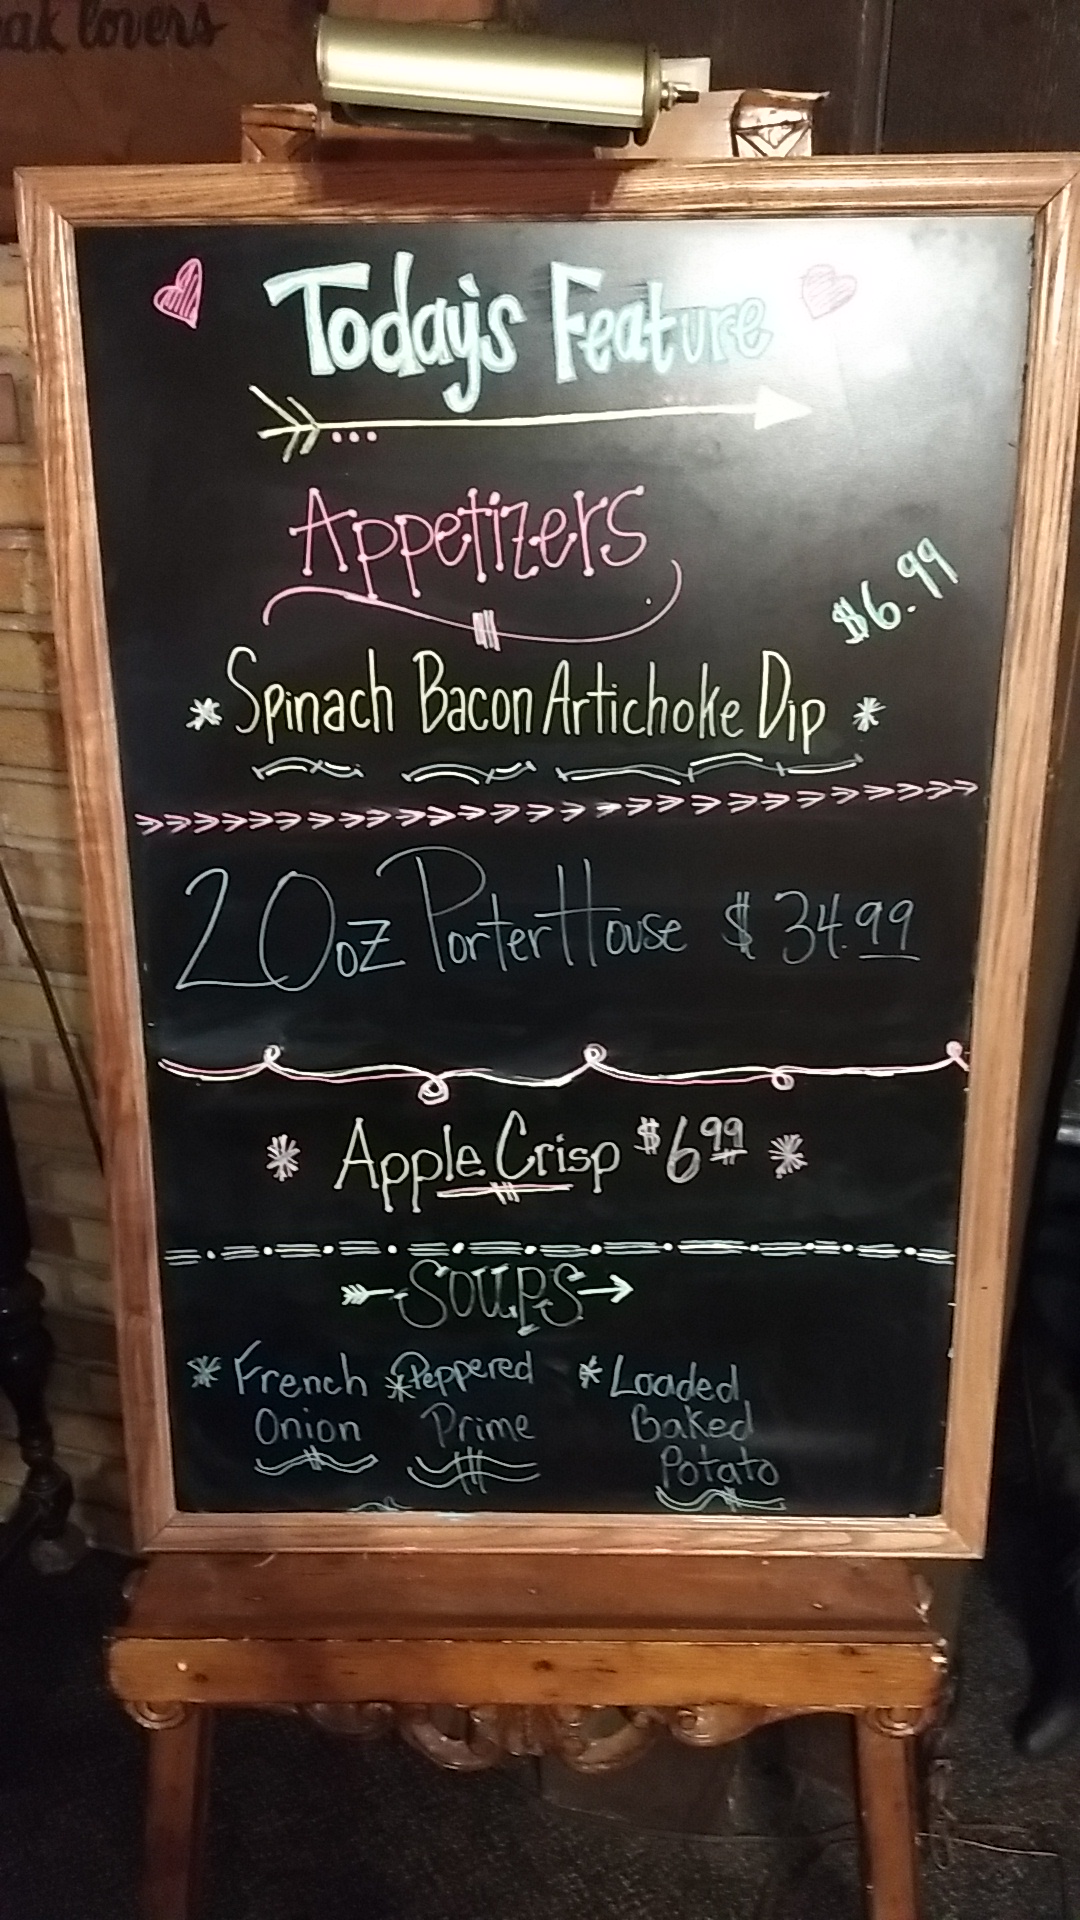 lovers
Today's Feature
Appetizers
$6.99
* Spinach Bacon Artichoke Dip *
20oz PorterHouse $34.99
* Apple Crisp $6.99 *
SOUPS
* French * Peppered * Loaded
Onion Prime Baked
Potato